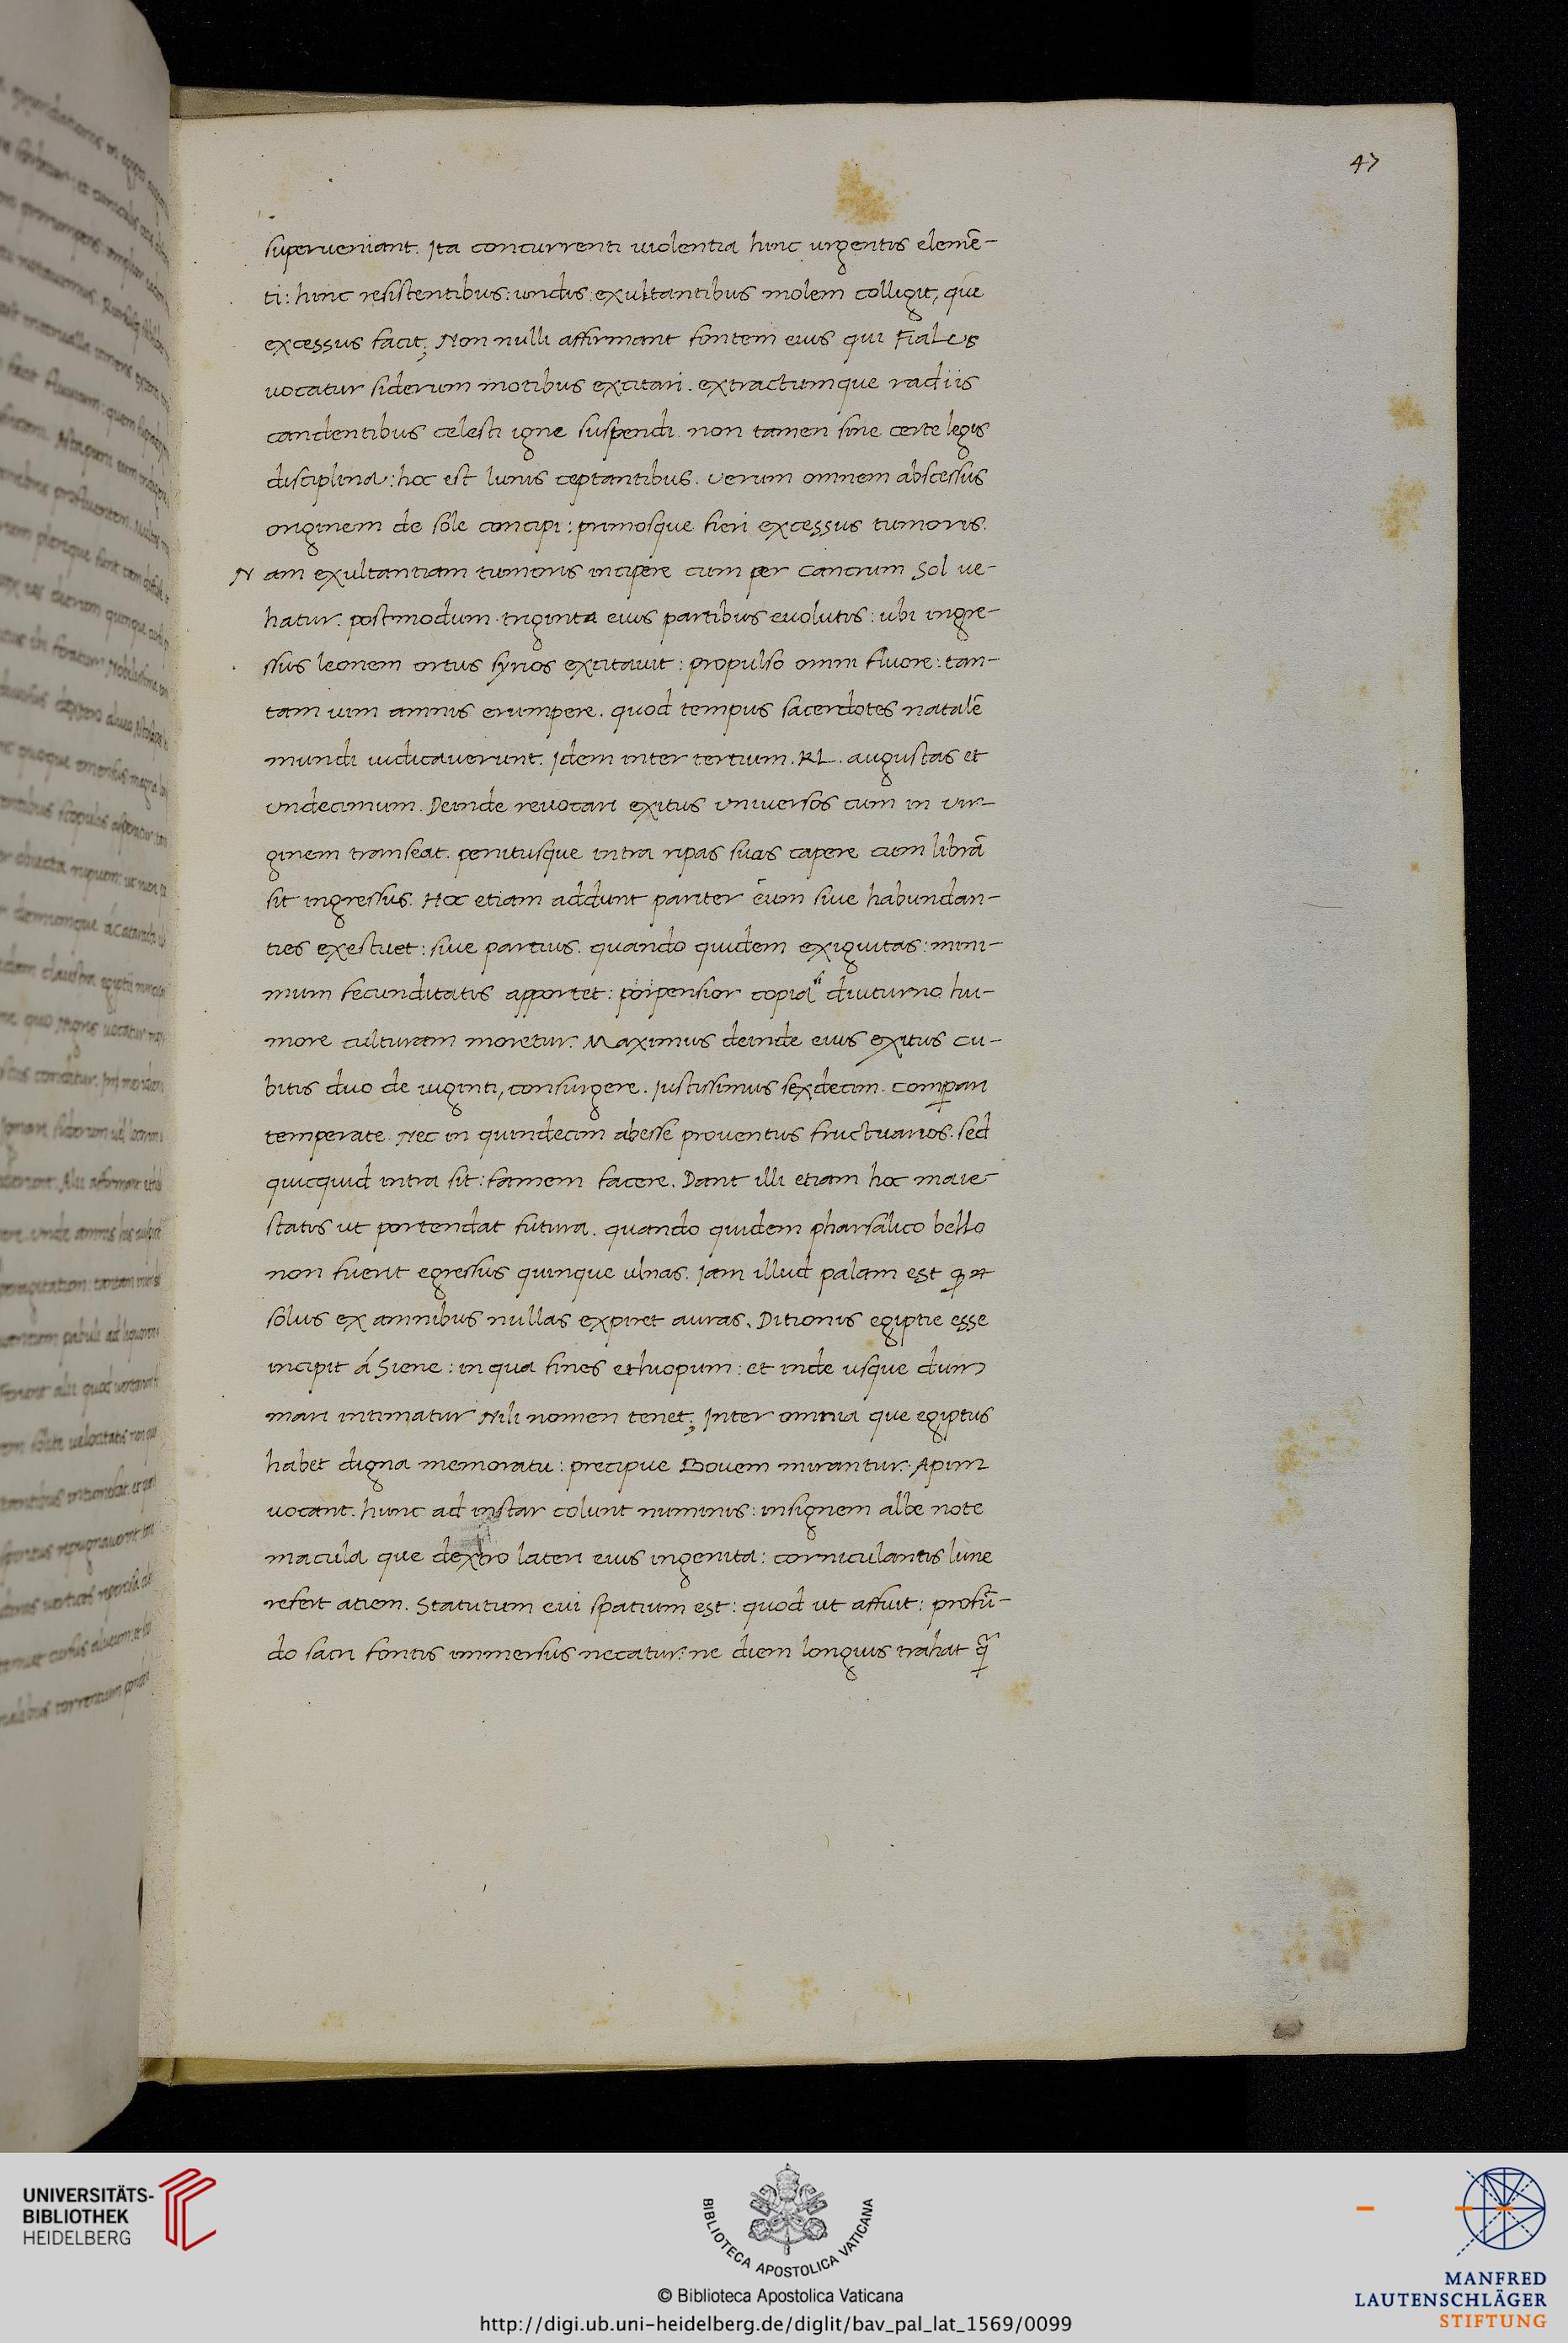 47
superveniant. Ita concurrenti uiolentia hinc urgentis elemē-
ti: hinc resistentibus: undis: exultantibus molem colligit, que
excessus facit; Non nulli affirmant fontem eius qui Fialus
uocatur siderum motibus excitari. extractumque radiis
candentibus celesti igne suspendi. non tamen sine certe legis
disciplina: hoc est lunis ceptantibus. Verum omnem abscessus
originem de sole concipi: primosque fieri excessus tumoris.
N am exultantiam tumoris incipere cum per Cancrum Sol ue-
hatur. postmodum triginta eius partibus euolutis: ubi ingre-
ssus leonem ortus syrios excitauit: propulso omni fluore: tan-
tam uim amnis erumpere. quod tempus sacerdotes natalē
mundi iudicaverunt. Idem inter tertium. KL. augustas et
Undecimum. Deinde reuocari exitus universos cum in vir-
ginem transeat. penitusque intra ripas suas capere cum librā
sit ingressus. Hoc etiam addunt pariter eum sive habundan-
ties exestuet: sive partius. quando quidem exiguitas: mini-
mum fecunditatis apportet: propensior copia diuturno hu-
more culturam moretur. Maximus deinde eius exitus cu-
bitis duo de uiginti, consurgere. Iustissimus sexdecim. comꝑari
temperate. Nec in quindecim abesse proventus fructuarios. sed
quicquid intra sit: famem facere. Dant illi etiam hoc maie-
statis ut portendat futura. quando quidem pharsalico bello
non fuerit egressus quinque ulnas. Iam illud palam est
solus ex amnibus nullas expiret auras. Ditionis egiptie esse
incipit á Siene: in qua fines ethiopum: et inde usque dum
mari intimatur Nili nomen tenet; Inter omnia que egiptus
habet digna memoratu: precipue Bouem mirantur. Apim
uocant. hunc ad instar colunt numinis: insignem albe note
macula que dextro lateri eius ingenita: corniculantis lune
refert atiem. Statutum eui spatium est: quod ut affuit: profū-
do sacri fontis immersus necatur: ne diem longius trahat q̄
UNIVERSITÄTS-
BIBLIOTHEK
HEIDELBERG
BIBLIOTECA APOSTOLICA VATICANA
© Biblioteca Apostolica Vaticana
http://digi.ub.uni-heidelberg.de/diglit/bav_pal_lat_1569/0099
MANFRED
LAUTENSCHLÄGER
STIFTUNG